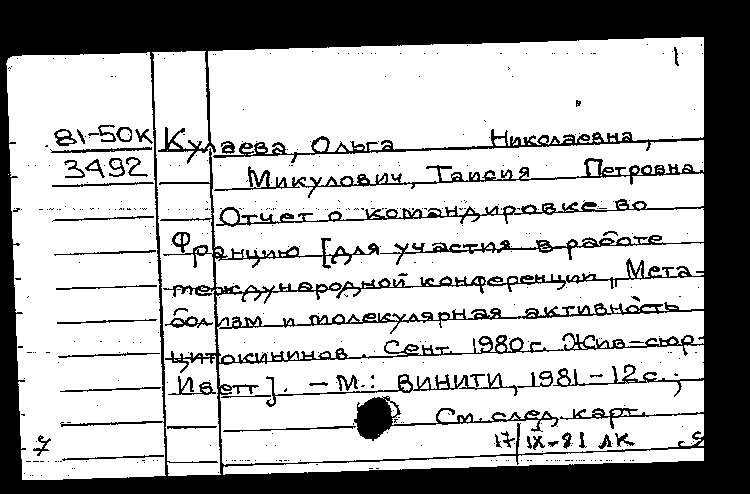 1
81-50К Кулаева, Ольга Николаевна,
3492 Микулович, Таисия Петровна.
Отчет о командировке во
Францию [для участия в работе
международной конференции „Мета-
болизм и молекулярная активность
цитокининов. Сент. 1980г. Жив-сюр-
Иветт]. – М.: ВИНИТИ, 1981 – 12 с.;
См. след. карт.
17/IX-81 ЛК